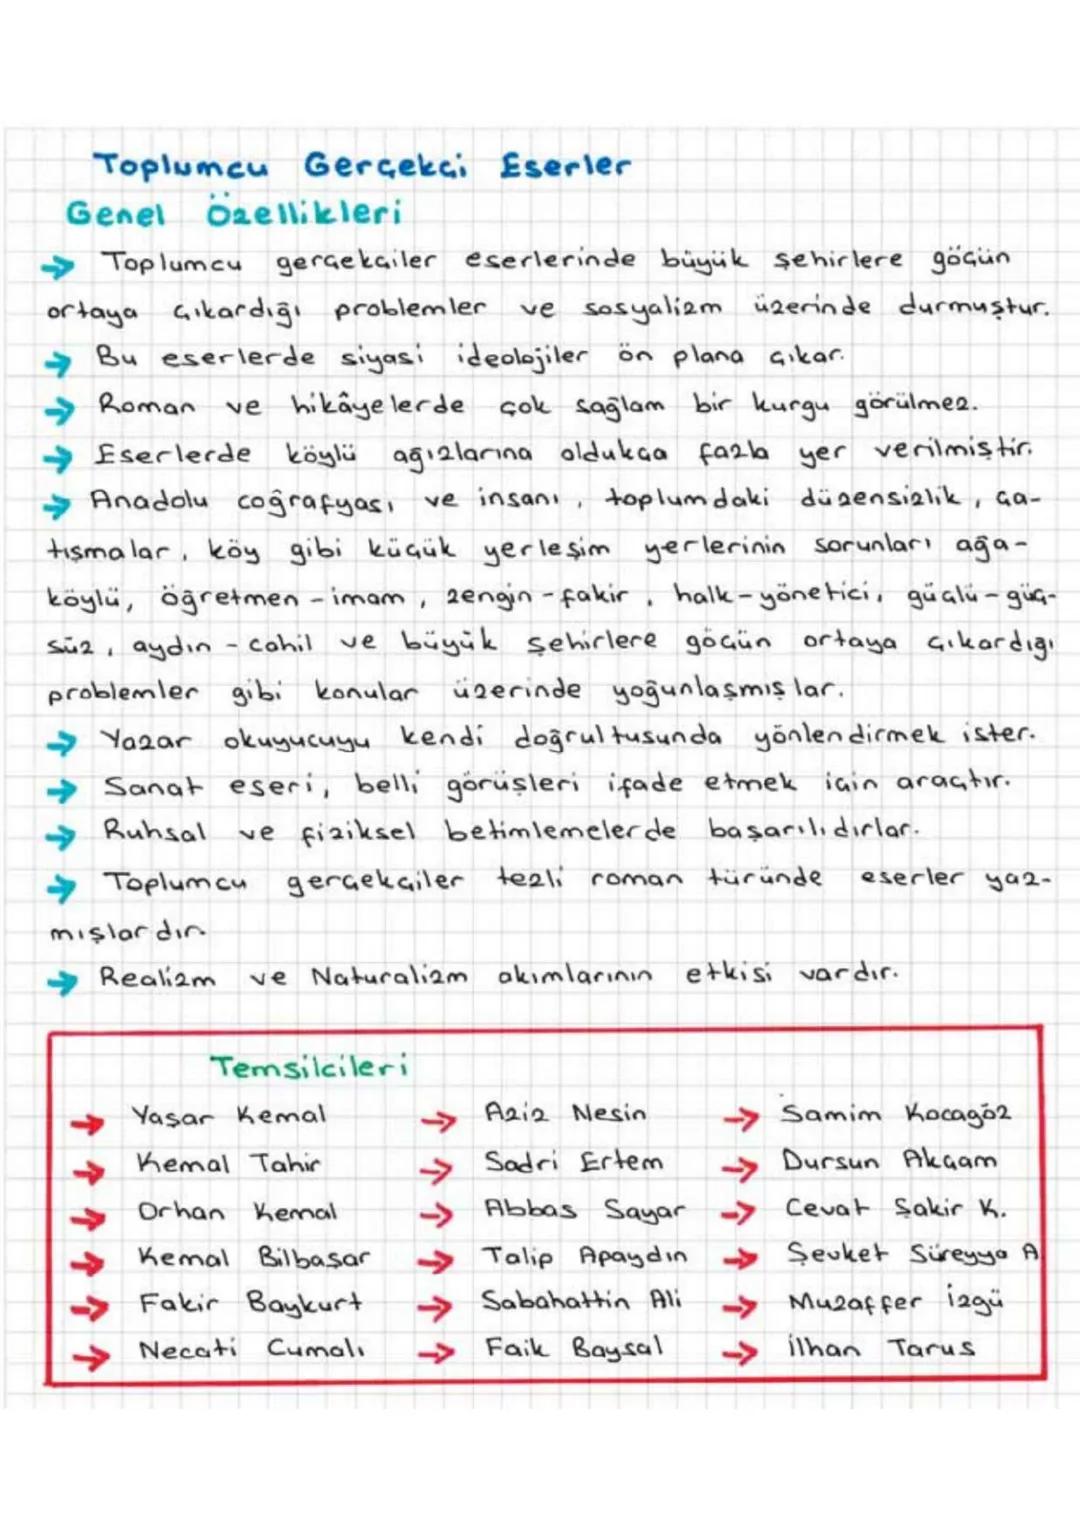 Toplumcu Gerçekçi Eserler
Genel Özellikleri
→ Toplumcu gerçekçiler eserlerinde büyük şehirlere göçün
ortaya çıkardığı problemler ve sosyalizm üzerinde durmuştur.
→ Bu eserlerde siyasi ideolojiler ön plana çıkar.
→ Roman ve hikâyelerde çok sağlam bir kurgu görülmez.
→ Eserlerde köylü ağızlarına oldukça fazla yer verilmiştir.
→ Anadolu coğrafyası ve insanı, toplumdaki düzensizlik, ça-
tışmalar, köy gibi küçük yerleşim yerlerinin sorunları ağa-
köylü, öğretmen-imam, zengin-fakir, halk-yönetici, güçlü-güç-
süz, aydın-cahil ve büyük şehirlere göçün ortaya çıkardığı
problemler gibi konular üzerinde yoğunlaşmışlar.
→ Yazar okuyucuyu kendi doğrultusunda yönlendirmek ister.
→ Sanat eseri, belli görüşleri ifade etmek için araçtır.
→ Ruhsal ve fiziksel betimlemelerde başarılıdırlar.
→ Toplumcu gerçekçiler tezli roman türünde eserler yaz-
mışlardır.
→ Realizm ve Naturalizm akımlarının etkisi vardır.
Temsilcileri
→ Yaşar Kemal → Aziz Nesin → Samim Kocagöz
→ Kemal Tahir → Sadri Ertem → Dursun Akçam
→ Orhan Kemal → Abbas Sayar → Cevat Şakir K.
→ Kemal Bilbaşar → Talip Apaydın → Şevket Süreyya A
→ Fakir Baykurt → Sabahattin Ali → Muzaffer İzgü
→ Necati Cumalı → Faik Baysal → İlhan Tarus